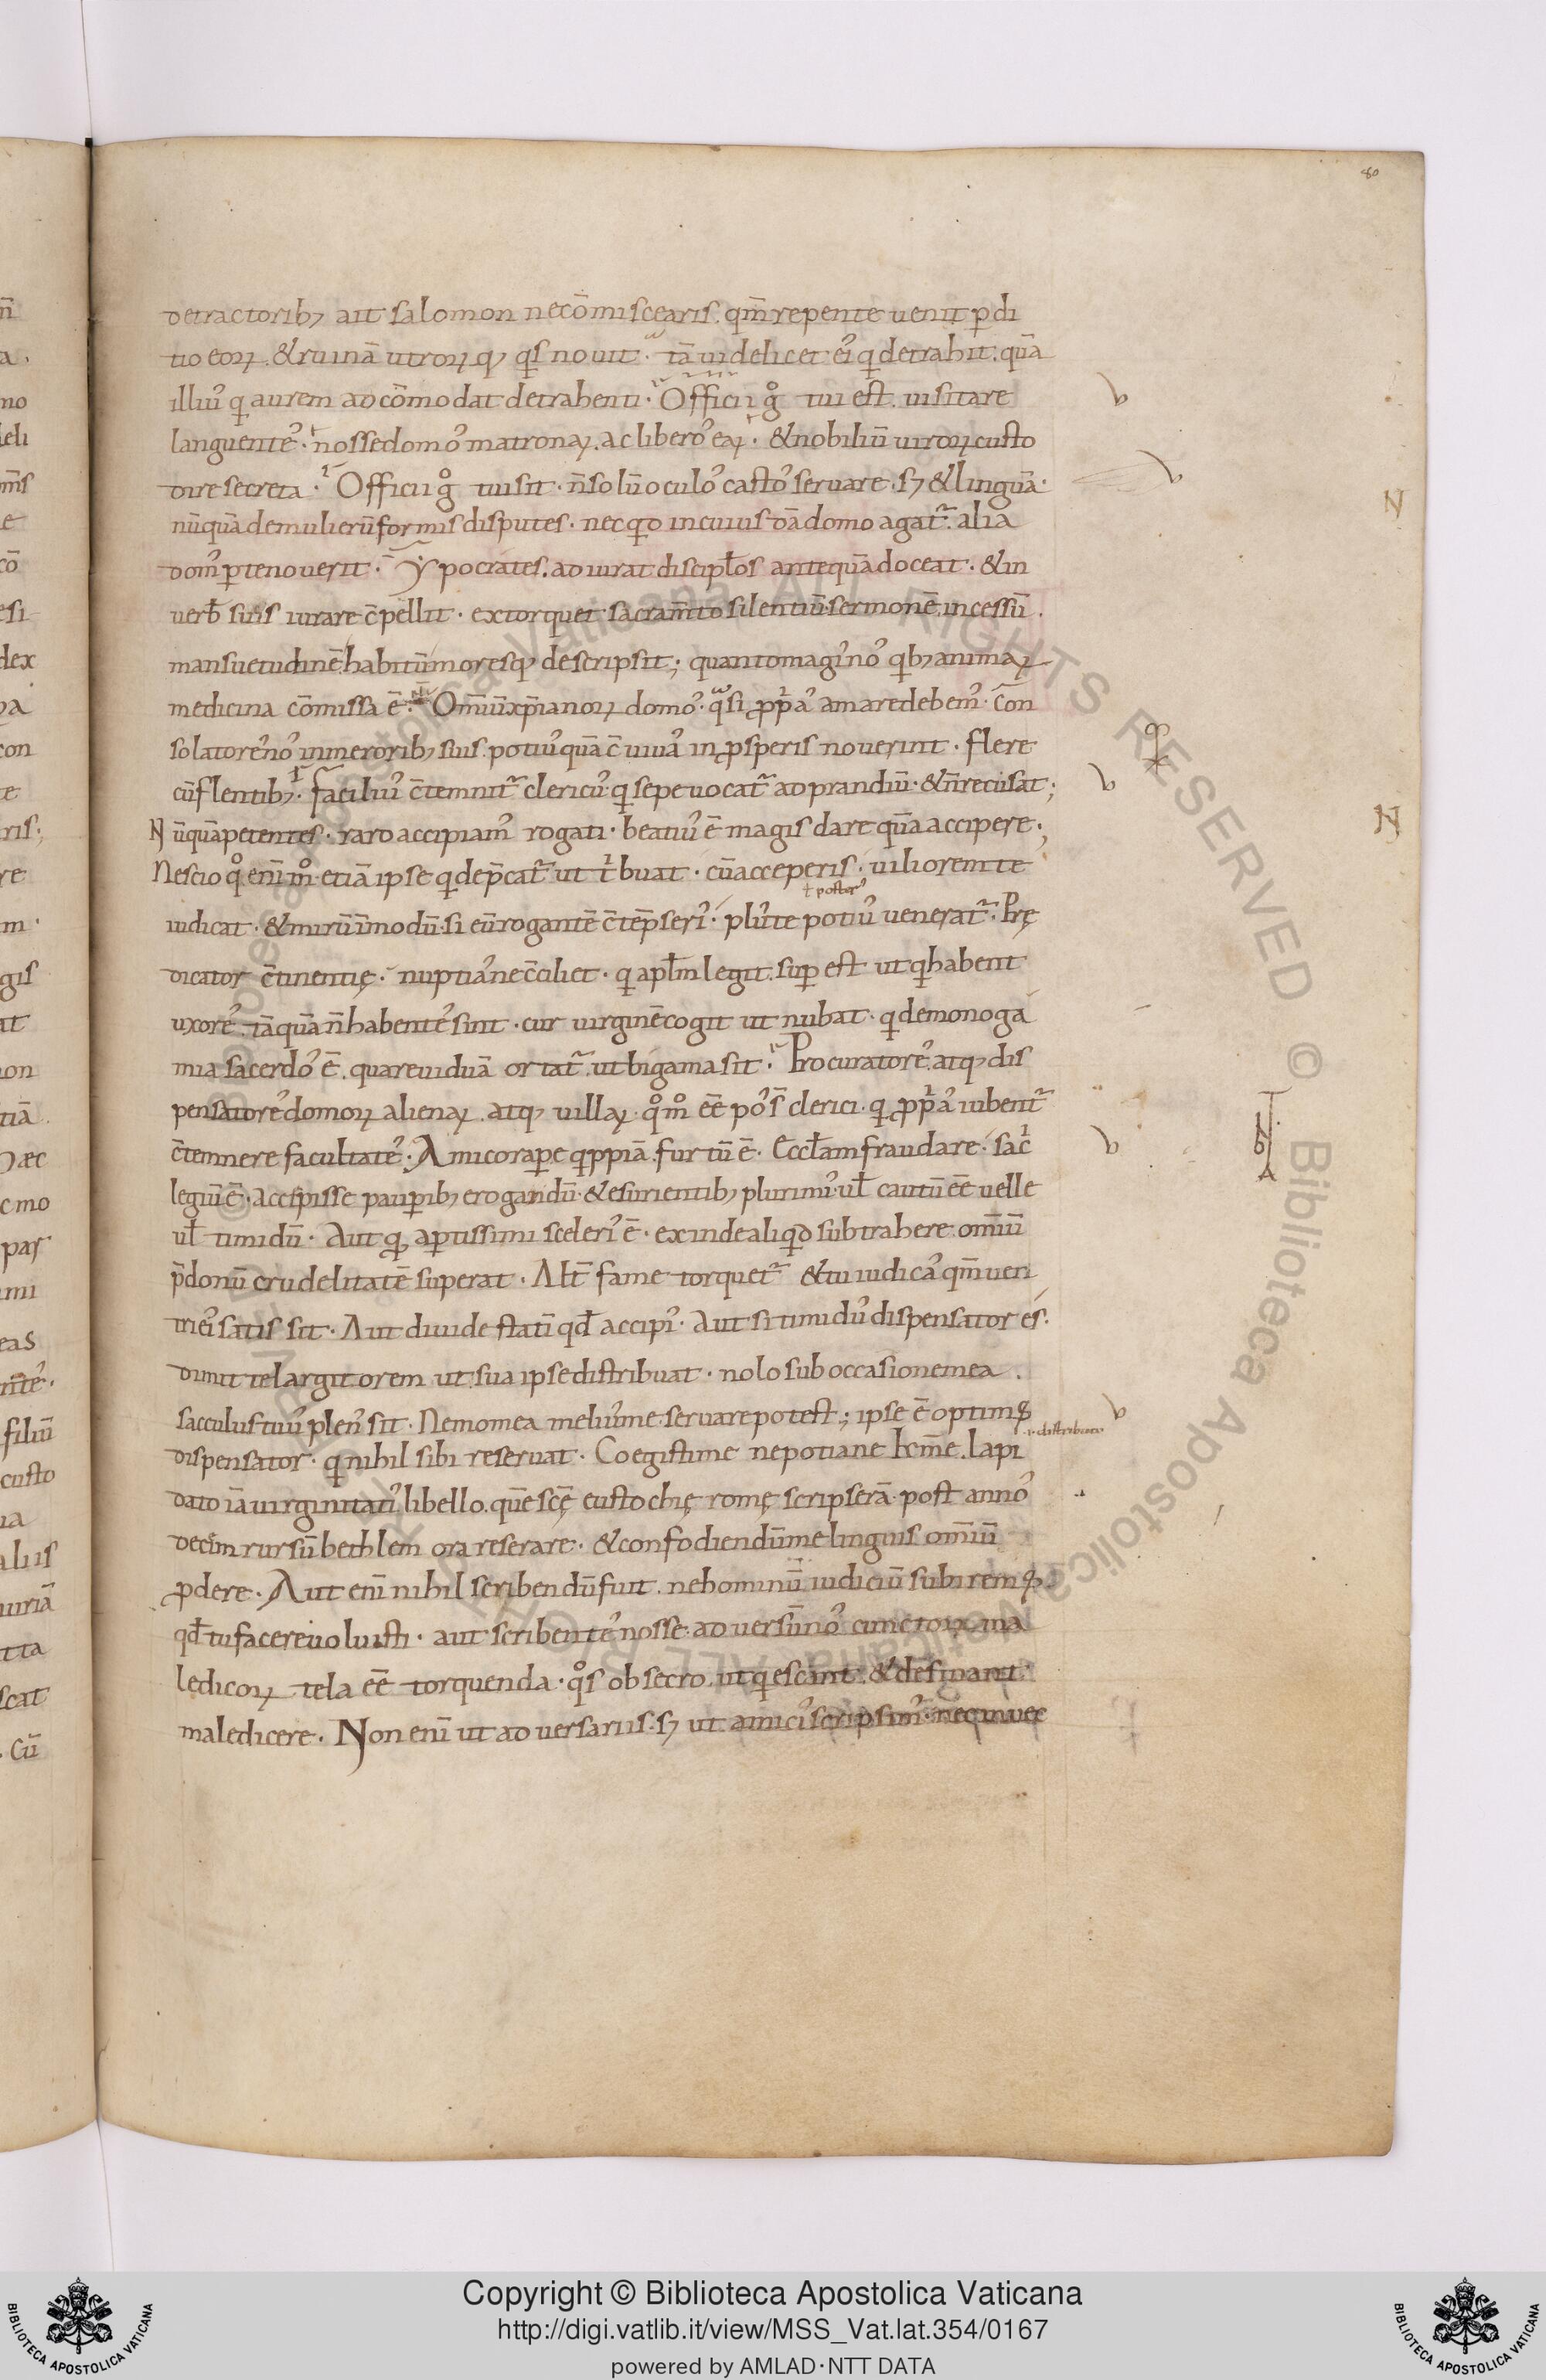 80
detractoribꝫ ait salomon necōmiscearis. qm̄ repente uenit ꝑdi
tio eoꝝ. & ruinā utroꝝqꝫ qͥs nouit. tā uidelicet eiꝰ qͥ detrahit. quā
illiuꝰ qͥ aurem adcōmodat detrahenti. Officii gͦ tui est. uisitare
languenteꝰ. nosse domoꝰ matronaꝝ. ac liberoꝰ eaꝝ. & nobiliū uiroꝝ custo
dire secreta. Officii gͦ tui sit. n̄ solū oculoꝰ castoꝰ seruare. sꝫ & linguā.
nūquā de mulierū formis disputes. nec qͥd incuiusdā domo agat᷑. alia
domꝰ ꝑ te nouerit. Ypocrates. adiurat discipl̄os antequā doceat. & in
uerƀ suis iurare c̄pellit. extorquet sacram̄to silentiū. sermonē. incessū.
mansuetudinē habitū moresqꝫ descripsit; quanto magiꝰ noꝰ qͥbꝫ animaꝝ
medicina cōmissa ē. Om̄iū xp̄ianoꝝ domoꝰ. qͣsi ꝓpͥaꝰ amare debemꝰ. Con
solatoreꝰ noꝰ in meroribꝫ suis. potiuꝰ quā c̄uiuaꝰ in ꝓsperis nouerint. flere
cū flentibꝫ. faciliuꝰ c̄temnit᷑ clericuꝰ. qͥ sepe uocat᷑ ad prandiū. & n̄ recusat;
Nūquā petentes. raro accipiamꝰ rogati. beatiuꝰ ē magis dare quā accipere;
Nescio qͦ enī mͦ. etiā ipse qͥ dep̄cat᷑ ut tͥbuat. cū acceperis. uiliorem te
ł posteꝰ
iudicat. & mirū īmodū. si eū rogantē c̄tēpseriꝰ. pluꝰ te potiuꝰ uenerat᷑. Prę
dicator c̄tinentię. nuptiaꝰ ne c̄ciliet. qͥ apl̄m legit. suꝑest ut qͥ habent
uxoreꝰ. tāquā n̄ habenteꝰ sint. cur uirginē cogit ut nubat. qͥ de monoga
mia sacerdoꝰ ē. quare uiduā ortat᷑. ut bigama sit. Procuratoreꝰ. atqꝫ dis
pensatoreꝰ domoꝝ alienaꝝ. atqꝫ uillaꝝ. qͦmͦ ēē poꝰs̄ clerici. qͥ ꝓpͥaꝰ iubent᷑
c̄temnere facultateꝰ. Amico raꝑe qͥppiā. furtū ē. Eccl̄am fraudare. sacͥ
legiū ē. Accepisse pauꝑibꝫ erogandū. & esurientibꝫ plurimiꝰ. ul̄ cautū ēē uelle
ul̄ timidū. Aut qͩ aꝑtissimi sceleriꝰ ē. exinde aliqͥd subtrahere. om̄iū
p̄donū crudelitatē superat. Alt̄ fame torquet᷑ & tu iudicaꝰ qm̄ uen
tri eiꝰ satis sit. Aut diuide statī qd̄ accipiꝰ. Aut si timiduꝰ dispensator es.
dimitte largitorem ut sua ipse distribuat. nolo sub occasione mea
sacculus tuuꝰ plenꝰ sit. Nemo mea meliuꝰ me seruare potest; ipse ē optimꝰ
.i. distribuere
dispensator. qͥ nihil sibi reseruat. Coegisti me nepotiane km̄e. lapi
dato iā uirginitatiꝰ libello. quē scę̄ eustochię romę scripserā. post annoꝰ
decēm rursū bethlem ora reserare. & confodiendū me linguis om̄iū
ꝓdere. Aut enī nihil scribendū fuit. ne hominū iudiciū subiremꝰ
qd̄ tu facere noluisti. aut scribenteꝰ nosse. aduersū noꝰ cunctoꝝ ma
ledicoꝝ tela ēē torquenda. qͦs obsecro. ut qͥescant. & desinant.
maledicere. Non enī ut aduersariis. sꝫ ut amiciꝰ scripsimꝰ. nec inuec
Copyright © Biblioteca Apostolica Vaticana
http://digi.vatlib.it/view/MSS_Vat.lat.354/0167
powered by AMLAD·NTT DATA